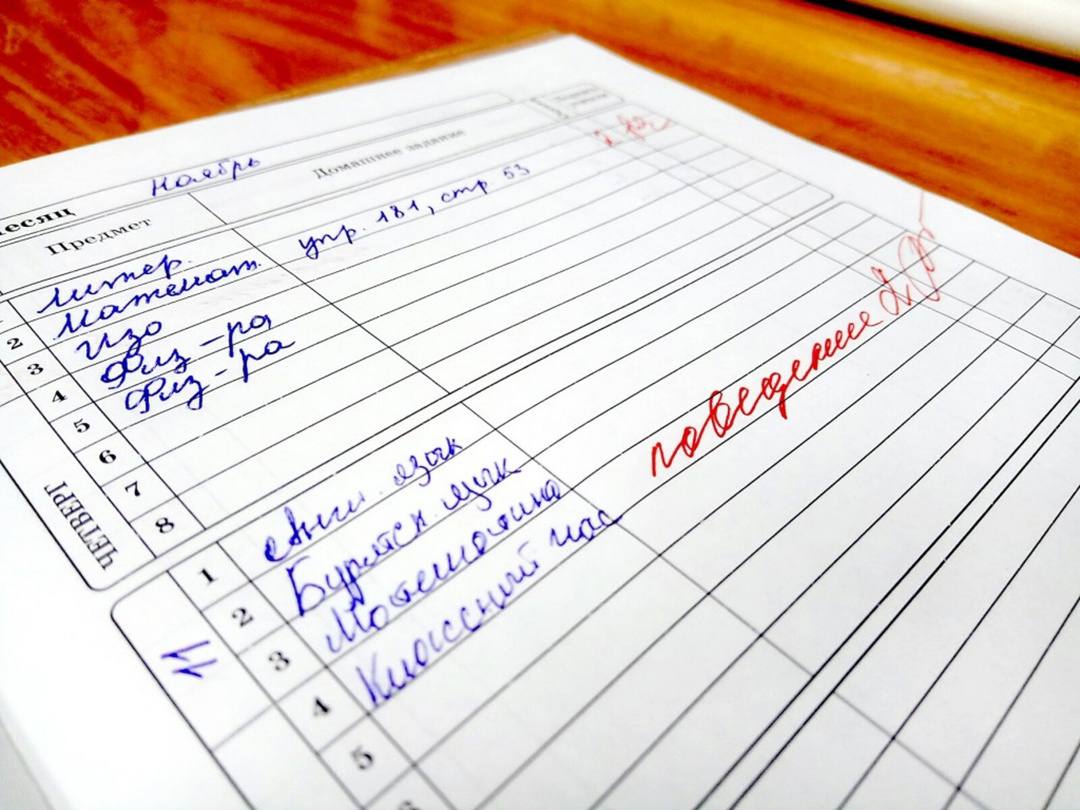 месяц Ноябрь
Предмет Домашнее задание
Литер.
2 Математ. упр. 181, стр 53
3 Изо
4 Физ-ра
5 Физ-ра
6
7
8
ЧЕТВЕРГ
1 Англ. язык
2 Бурятск. язык
3 Математика
4 Классный час
5
11
поведение 2
2